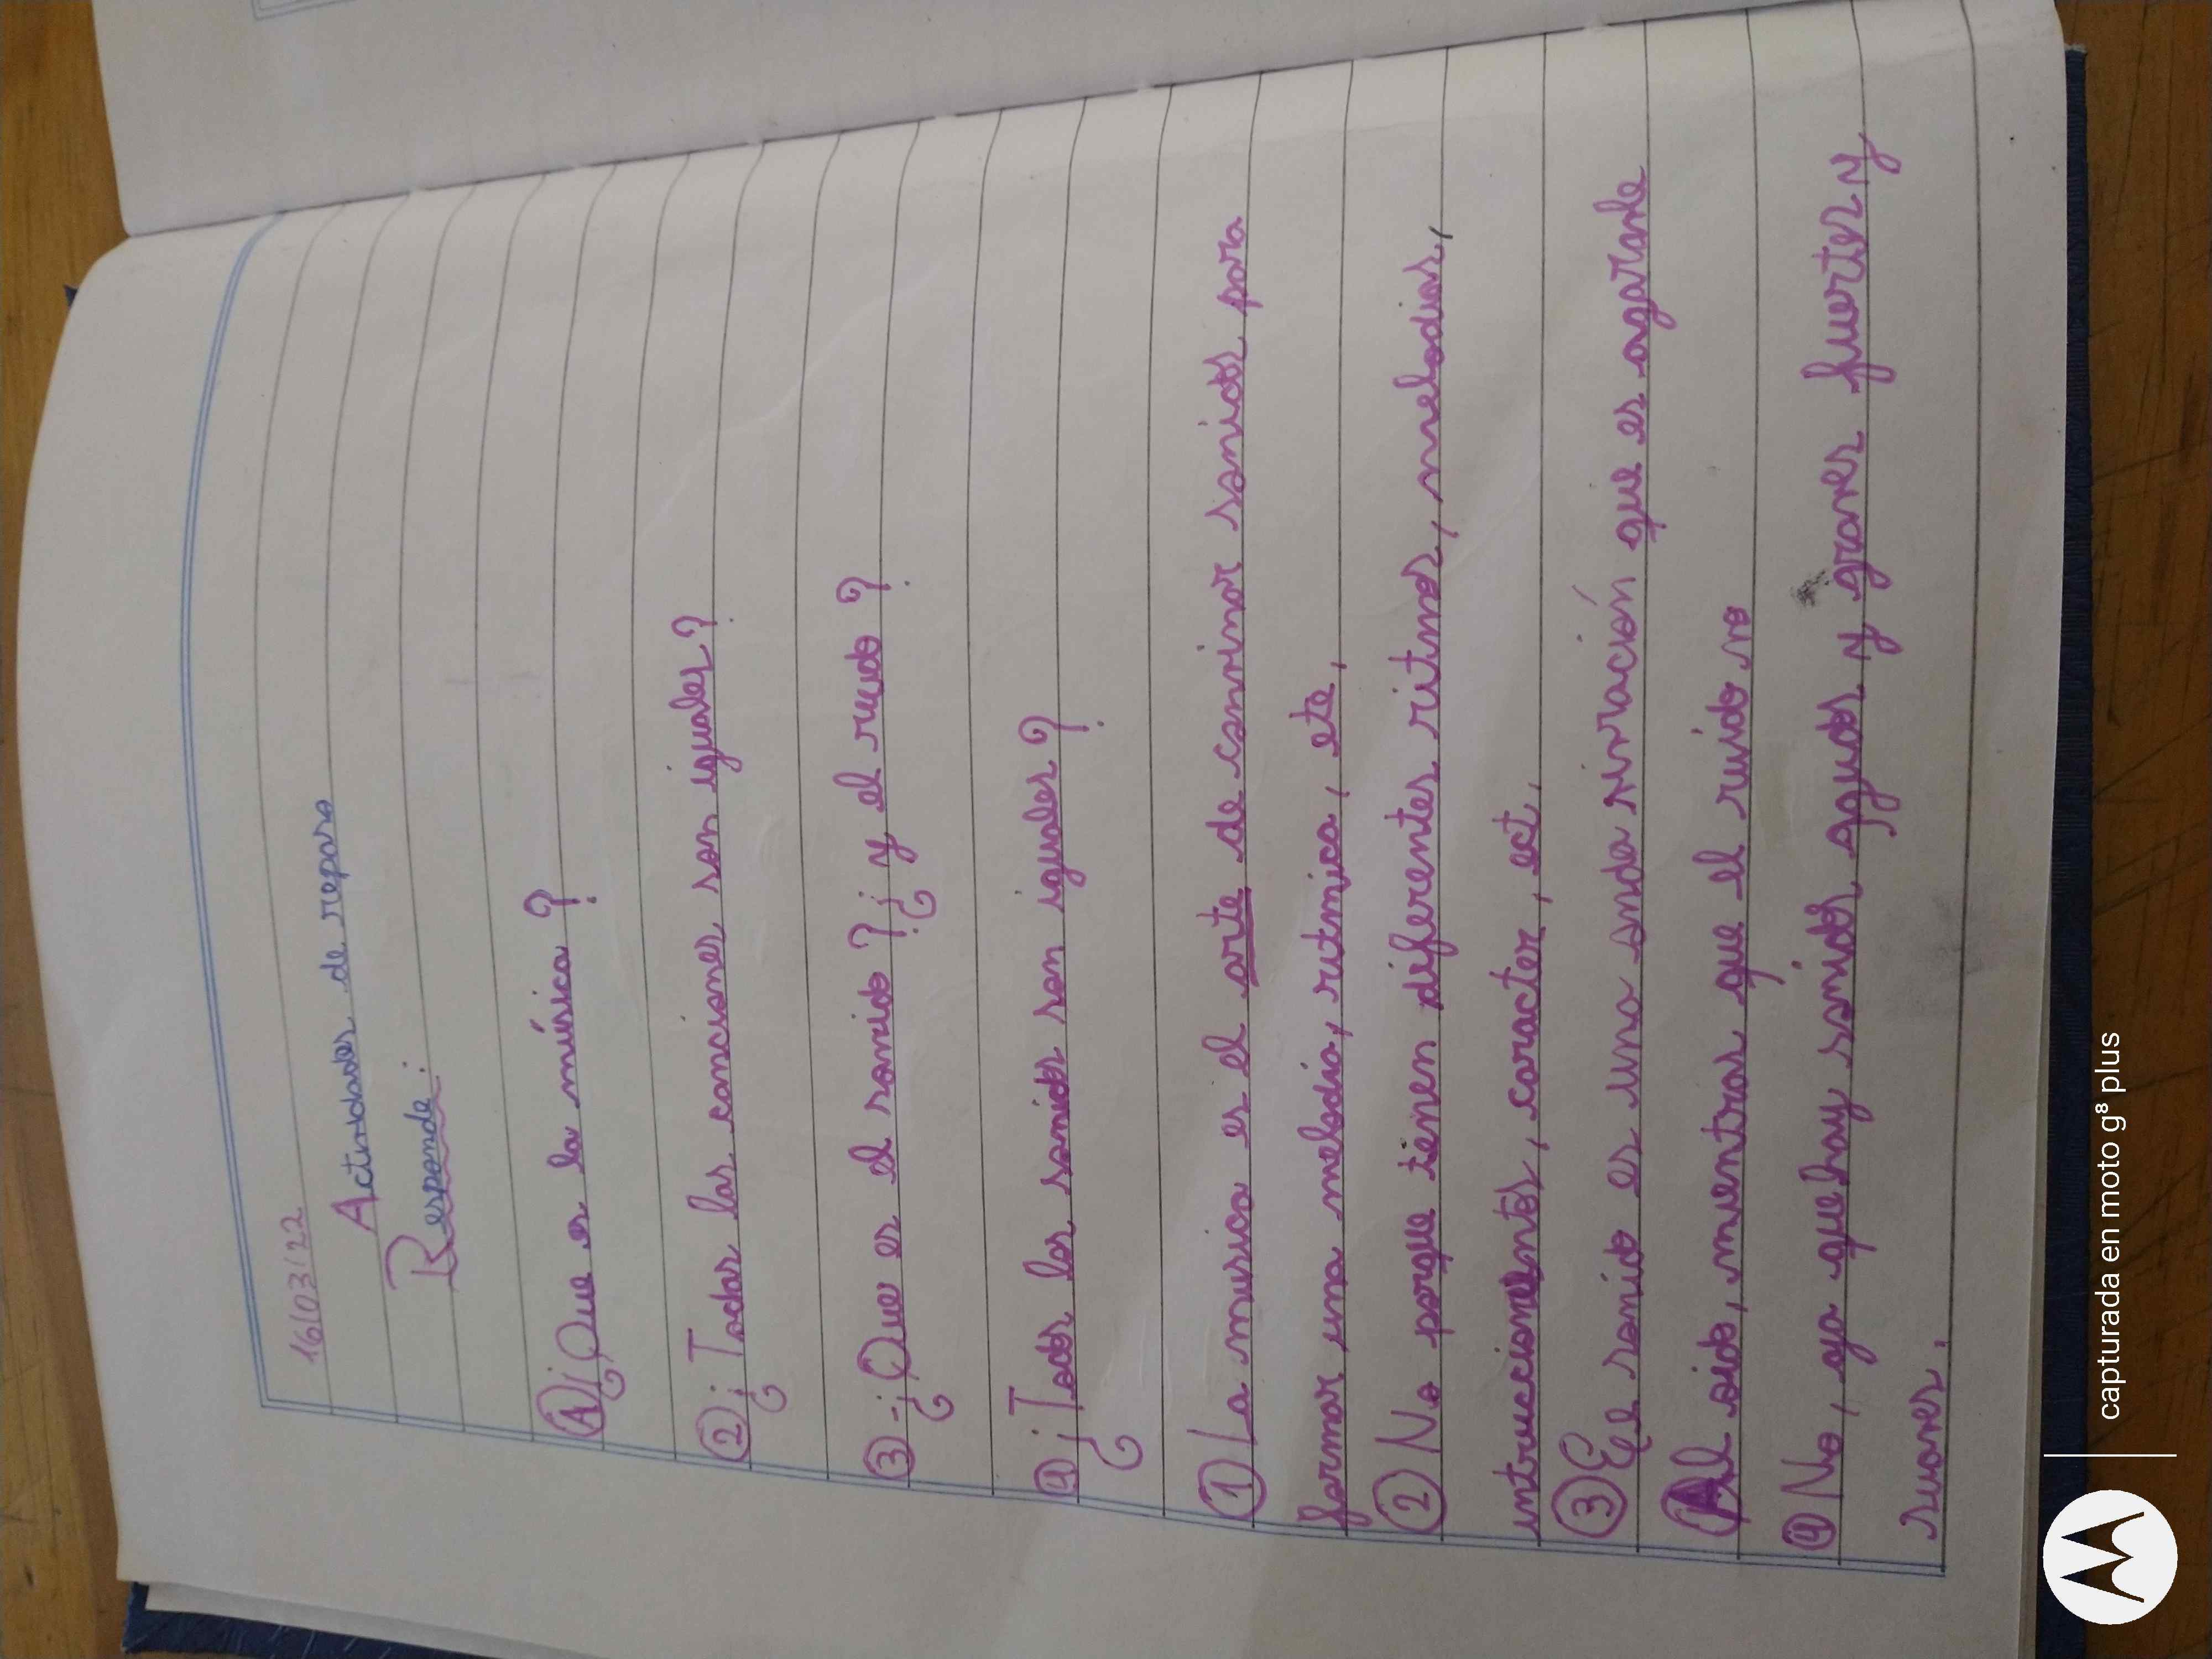 16/03/22
Actividades de repaso
Responde:
A ¿Que es la música?
2 ¿Todas las canciones son iguales?
3 -¿Que es el sonido? ¿y el ruido?
4 ¿Todos los sonidos son iguales?
1 La musica es el arte de convinar sonidos para
formar una melodia, ritmica, etc,
2 No porque tienen diferentes ritmos, melodias,
caracter, ect,
3 El sonido es una onda vivración que es agarable
Al oido, mientras que el ruido no
4 No, ya que hay sonidos agudos y graves fuertes y
suaves.
capturada en moto g⁸ plus